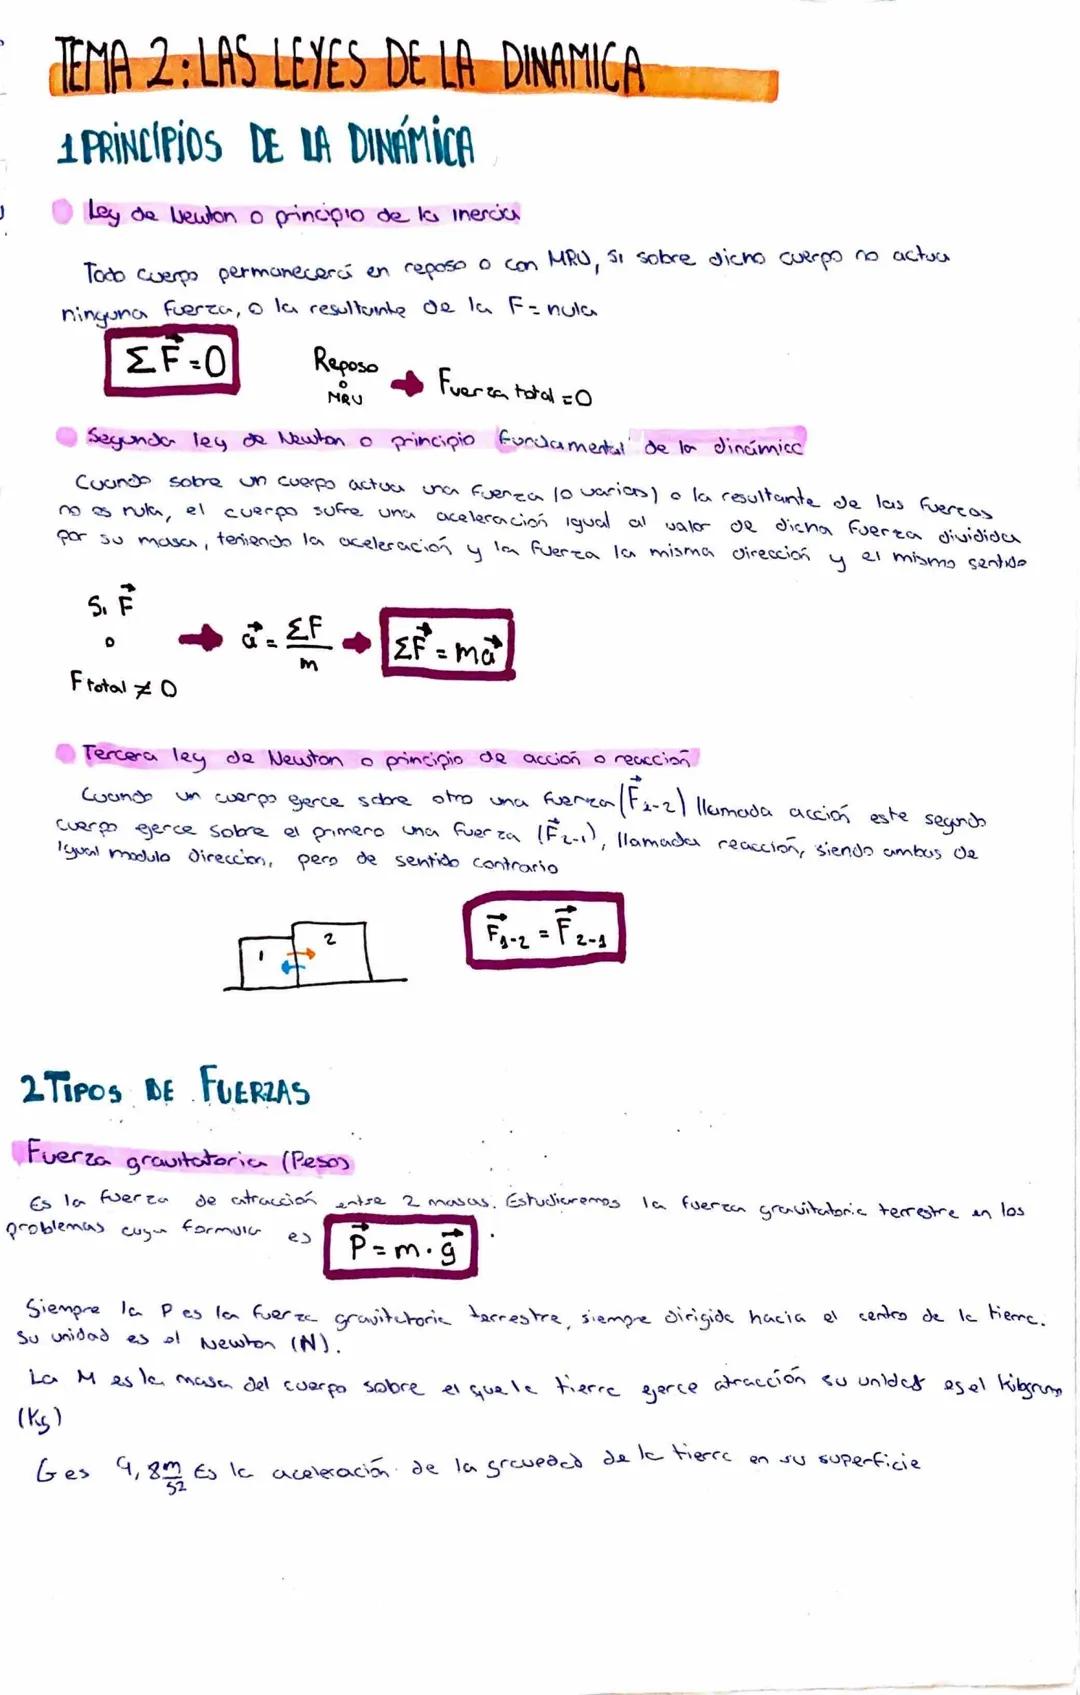 TEMA 2: LAS LEYES DE LA DINAMICA
1 PRINCIPIOS DE LA DINÁMICA
Ley de Newton o principio de la inercia
Todo cuerpo permanecerá en reposo o con MRU, si sobre dicho cuerpo no actua
ninguna fuerza, o la resultante de la F = nula
ΣF⃗ = 0
Reposo
o
MRU
Fuerza total = 0
Segunda ley de Newton o principio fundamental de la dinámica
Cuando sobre un cuerpo actua una fuerza (o varias) o la resultante de las fuerzas
no es nula, el cuerpo sufre una aceleración igual al valor de dicha fuerza dividida
por su masa, teniendo la aceleración y la fuerza la misma dirección y el mismo sentido
Si F⃗
o
F total ≠ 0
a⃗ = ΣF / m
ΣF⃗ = ma⃗
Tercera ley de Newton o principio de acción o reacción
Cuando un cuerpo ejerce sobre otro una fuerza (F⃗1-2) llamada acción este segundo
cuerpo ejerce sobre el primero una fuerza (F⃗2-1), llamada reacción, siendo ambas de
igual modulo dirección, pero de sentido contrario
1
2
F⃗1-2 = F⃗2-1
2 TIPOS DE FUERZAS
Fuerza gravitatoria (Peso)
Es la fuerza de atracción entre 2 masas. Estudiaremos la fuerza gravitatoria terrestre en los
problemas cuya formula es P⃗ = m · g⃗.
Siempre la P es la fuerza gravitatoria terrestre, siempre dirigida hacia el centro de la tierra.
Su unidad es el Newton (N).
La M es la masa del cuerpo sobre el que la tierra ejerce atracción su unidad es el kilogramo
(Kg)
G es 9,8 m/s2 Es la aceleración de la gravedad de la tierra en su superficie